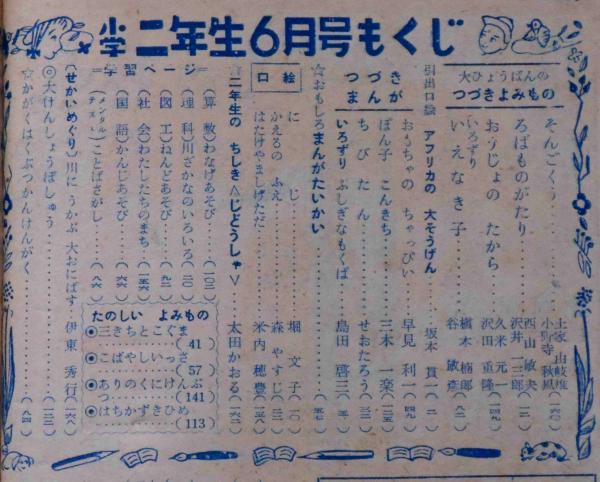 小学二年生6月号もくじ
大ひょうばんの
つづきよみもの
そんごくう
ろばものがたり
おうじょの たから
いろずり
いえなき子
土家 由岐雄
小野寺 秋風
西山 敏夫
沢井 一三郎
久米 元一
沢田 重隆
槇本 楠郎
谷 敏彦
引出口絵 アフリカの 大そうげん
坂本 貫一
つづき
まんが
おもちゃの ちゃっぴい
早見 利一
ぽん子 こんきち
三木 一楽
ちびたん
せおたろう
いろずり ふしぎなもくば
島田 啓三
☆おもしろまんがたいかい
口絵
にじ
堀 文子
かえるの ふえ
森 やすじ
はたけやましげただ
米内 穂豊
二年生の ちしき<じどうしゃ>
太田 かおる
=学習ページ=
(算数)わなげあそび
(理科)川ざかなのいろいろ
(図工)ねんどあそび
(社会)わたしたちのまち
(国語)かんじあそび
(メンタルテスト)ことばさがし
(せかいめぐり)川に うかぶ 大おにばす
伊東 秀行
◎大けんしょうぼしゅう
☆かがくはくぶつかんけんがく
たのしい よみもの
◉三きちとこぐま
(41)
◉こばやしいっさ
(57)
◉ありのくにけんぶつ
(141)
◉はちかずきひめ
(113)